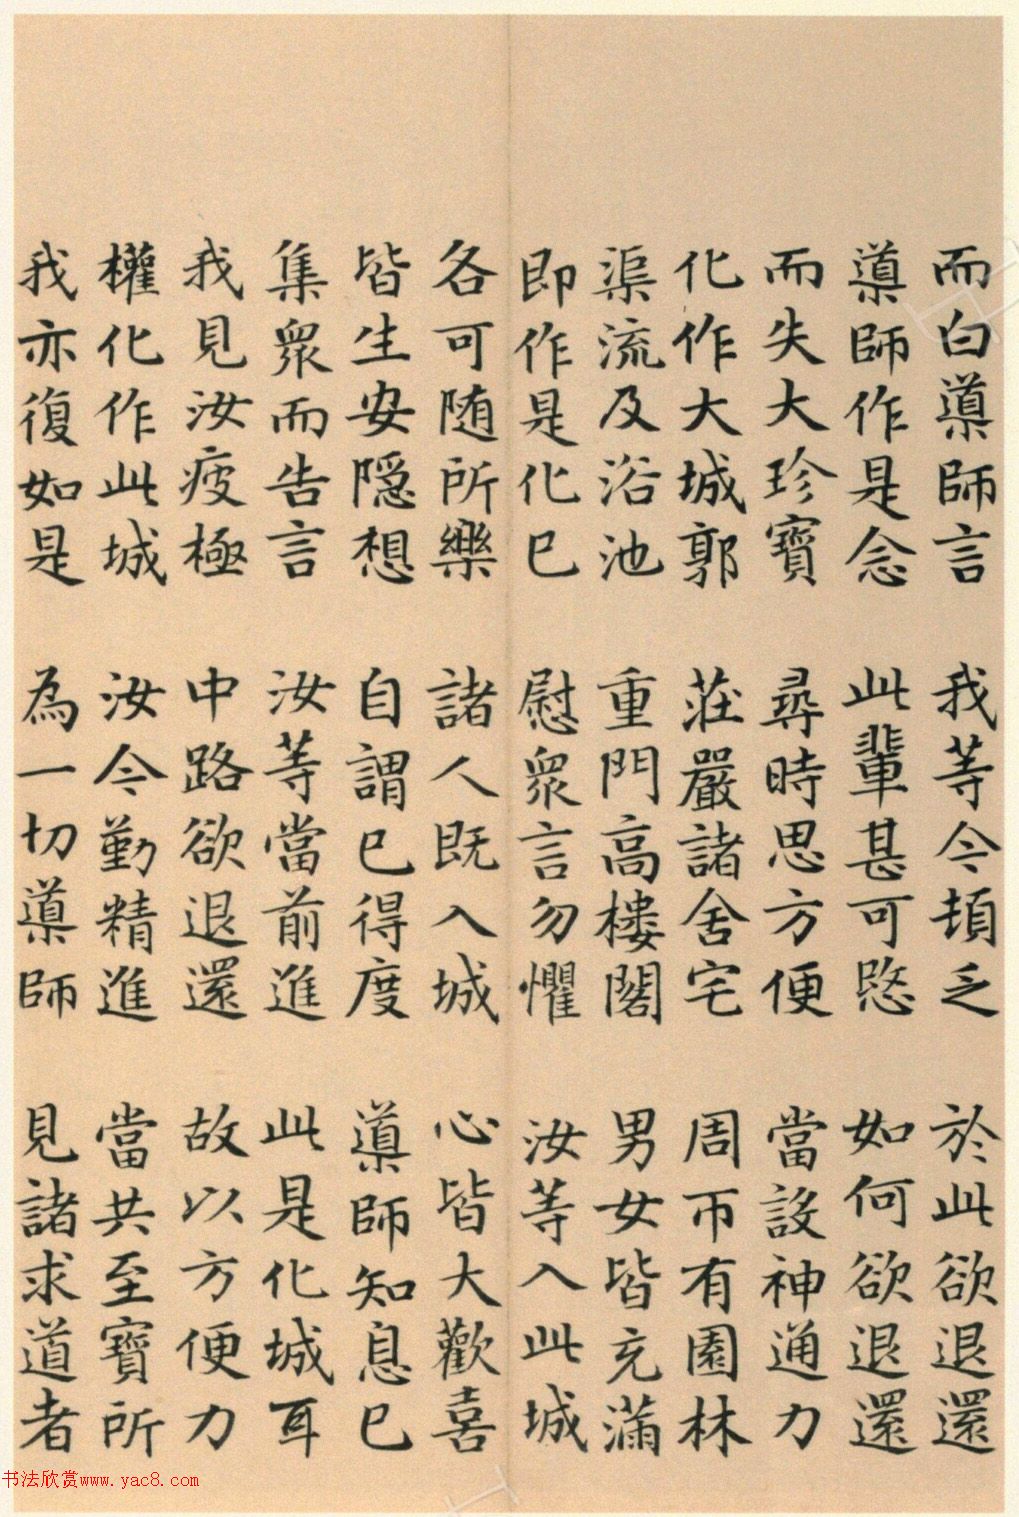 而白導師言 我等今頓乏 於此欲退還
導師作是念 此輩甚可愍 如何欲退還
而失大珍寶 尋時思方便 當設神通力
化作大城郭 莊嚴諸舍宅 周帀有園林
渠流及浴池 重門高樓閣 男女皆充滿
即作是化已 慰眾言勿懼 汝等入此城
各可随所樂 諸人既入城 心皆大歡喜
皆生安隠想 自謂已得度 導師知息已
集眾而告言 汝等當前進 此是化城耳
我見汝疲極 中路欲退還 故以方便力
權化作此城 汝今勤精進 當共至寶所
我亦復如是 為一切導師 見諸求道者
书法欣赏www.yac8.com